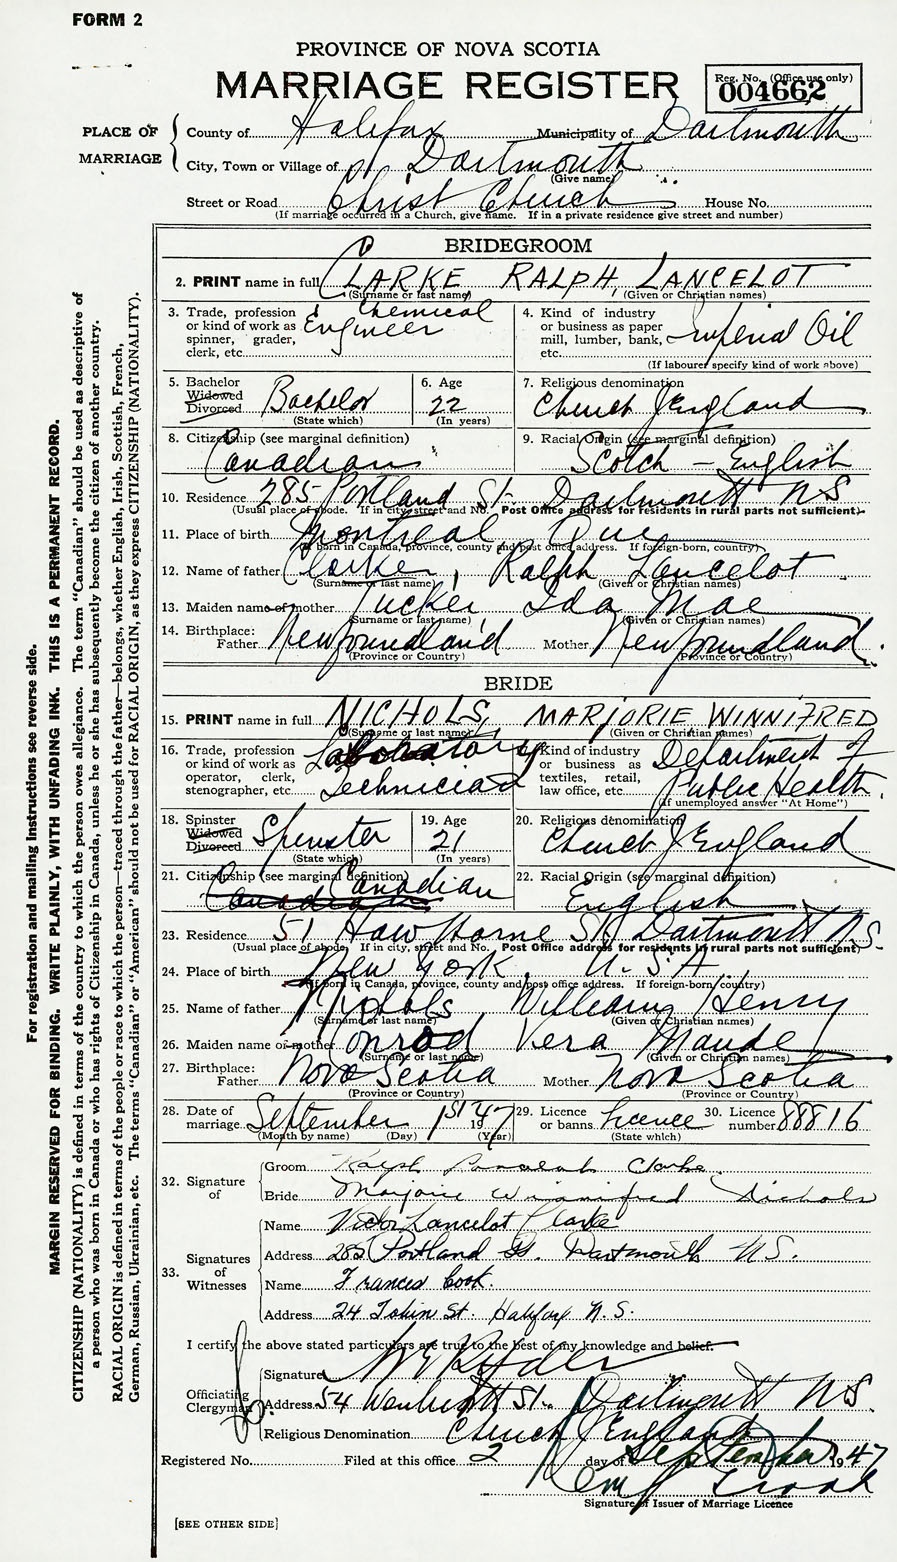 FORM 2
PROVINCE OF NOVA SCOTIA
MARRIAGE REGISTER
Reg. No. (Office use only)
004662
PLACE OF MARRIAGE
County of Halifax Municipality of Dartmouth
City, Town or Village of Dartmouth
(Give name)
Street or Road Christ Church House No.
(If marriage occurred in a Church, give name. If in a private residence give street and number)
BRIDEGROOM
2. PRINT name in full CLARKE RALPH, LANCELOT
(Surname or last name) (Given or Christian names)
3. Trade, profession or kind of work as spinner, grader, clerk, etc. Chemical Engineer
4. Kind of industry or business as paper mill, lumber, bank, etc. Imperial Oil
(If labourer specify kind of work above)
5. Bachelor Widowed Divorced Bachelor
(State which)
6. Age 22
(In years)
7. Religious denomination
Church of England
8. Citizenship (see marginal definition)
Canadian
9. Racial Origin (see marginal definition)
Scotch - English
10. Residence 285 Portland St. Dartmouth NS
(Usual place of abode. If in city, street and No. Post Office address for residents in rural parts not sufficient)
11. Place of birth Montreal Que
(If born in Canada, province, county and post office address. If foreign-born, country)
12. Name of father Clarke, Ralph Lancelot
(Surname or last name) (Given or Christian names)
13. Maiden name of mother Tucker Ida Mae
(Surname or last name) (Given or Christian names)
14. Birthplace:
Father Newfoundland Mother Newfoundland.
(Province or Country) (Province or Country)
BRIDE
15. PRINT name in full NICHOLS, MARJORIE WINNIFRED
(Surname or last name) (Given or Christian names)
16. Trade, profession or kind of work as operator, clerk, stenographer, etc. Laboratory Technician
17. Kind of industry or business as textiles, retail, law office, etc. Department of Public Health.
(If unemployed answer "At Home")
18. Spinster Widowed Divorced Spinster
(State which)
19. Age 21
(In years)
20. Religious denomination
Church of England
21. Citizenship (see marginal definition)
Canadian
Canadian
22. Racial Origin (see marginal definition)
English
23. Residence 51 Hawthorne St. Dartmouth N.S.
(Usual place of abode. If in city, street and No. Post Office address for residents in rural parts not sufficient)
24. Place of birth New York, U.S.A.
(If born in Canada, province, county and post office address. If foreign-born, country)
25. Name of father Nichols William Henry
(Surname or last name) (Given or Christian names)
26. Maiden name of mother Conrod Vera Maude
(Surname or last name) (Given or Christian names)
27. Birthplace:
Father Nova Scotia Mother Nova Scotia
(Province or Country) (Province or Country)
28. Date of marriage September 1st 1947
(Month by name) (Day) (Year)
29. Licence or banns licence
(State which)
30. Licence number 88816
32. Signature of
Groom Ralph Lancelot Clarke.
Bride Marjorie Winnifred Nichols
33. Signatures of Witnesses
Name Victor Lancelot Clarke
Address 285 Portland St. Dartmouth N.S.
Name Frances Cook.
Address 24 Tobin St. Halifax N.S.
I certify the above stated particulars are true to the best of my knowledge and belief.
Officiating Clergyman
Signature Ryder
Address 54 Wentworth St. Dartmouth N.S.
Religious Denomination Church of England
Registered No. Filed at this office 2 day of September 1947
Signature of Issuer of Marriage Licence
[SEE OTHER SIDE]
For registration and mailing instructions see reverse side.
MARGIN RESERVED FOR BINDING. WRITE PLAINLY, WITH UNFADING INK. THIS IS A PERMANENT RECORD.
CITIZENSHIP (NATIONALITY) is defined in terms of the country to which the person owes allegiance. The term "Canadian" should be used as descriptive of
a person who was born in Canada or who has rights of Citizenship in Canada, unless he or she has subsequently become the citizen of another country.
RACIAL ORIGIN is defined in terms of the people or race to which the person—traced through the father—belongs, whether English, Irish, Scottish, French,
German, Russian, Ukrainian, etc. The terms "Canadian" or "American" should not be used for RACIAL ORIGIN, as they express CITIZENSHIP (NATIONALITY).